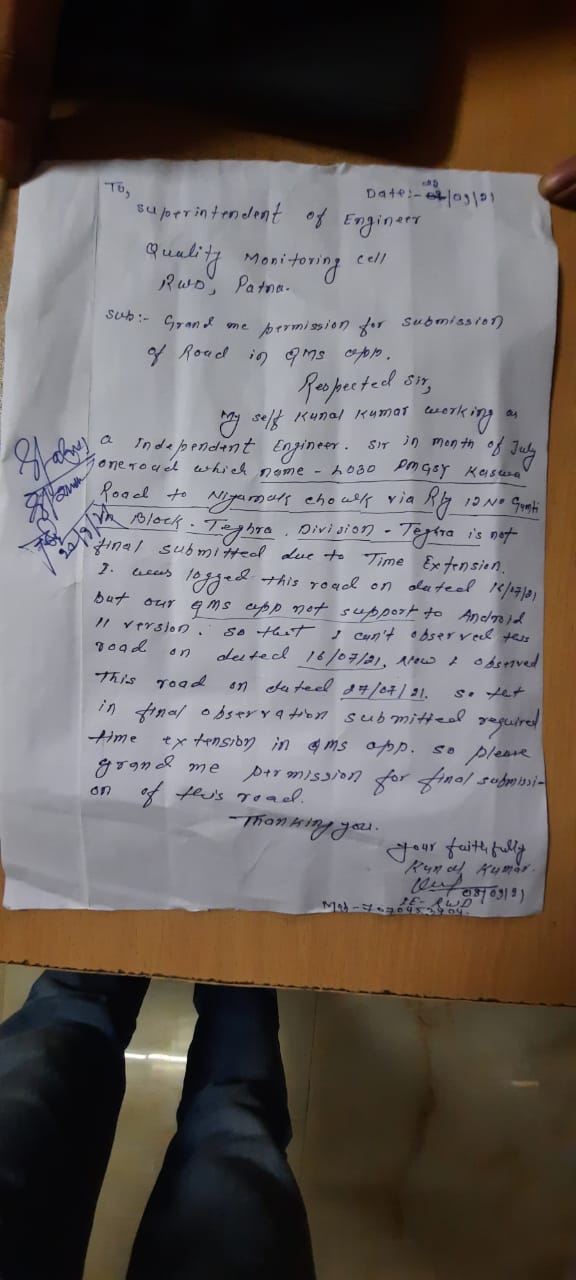 To,
Date:- 08/09/21
Superintendent of Engineer
Quality Monitoring cell
RWD, Patna.
Sub:- Grand me permission for submission
of Road in QMS app.
Respected Sir,
My self Kunal Kumar working as
a Independent Engineer. Sir in month of July
one road which name - L030 PMGSY Kaswa
Road to Niyamak chowk via Rly 12 No Gumti
in Block - Teghra, Division - Teghra is not
final submitted due to Time Extension.
I was logged this road on dated 16/07/21
but our QMS app not support to Android
11 version. so that I can't observed this
road on dated 16/07/21. Now I observed
This road on dated 27/07/21. so tat
in final observation submitted required
time extension in QMS app. so please
grand me permission for final submissi-
on of this road.
Thanking you.
your faithfully
Kunal Kumar.
08/09/21
IE- RWD
Mob-